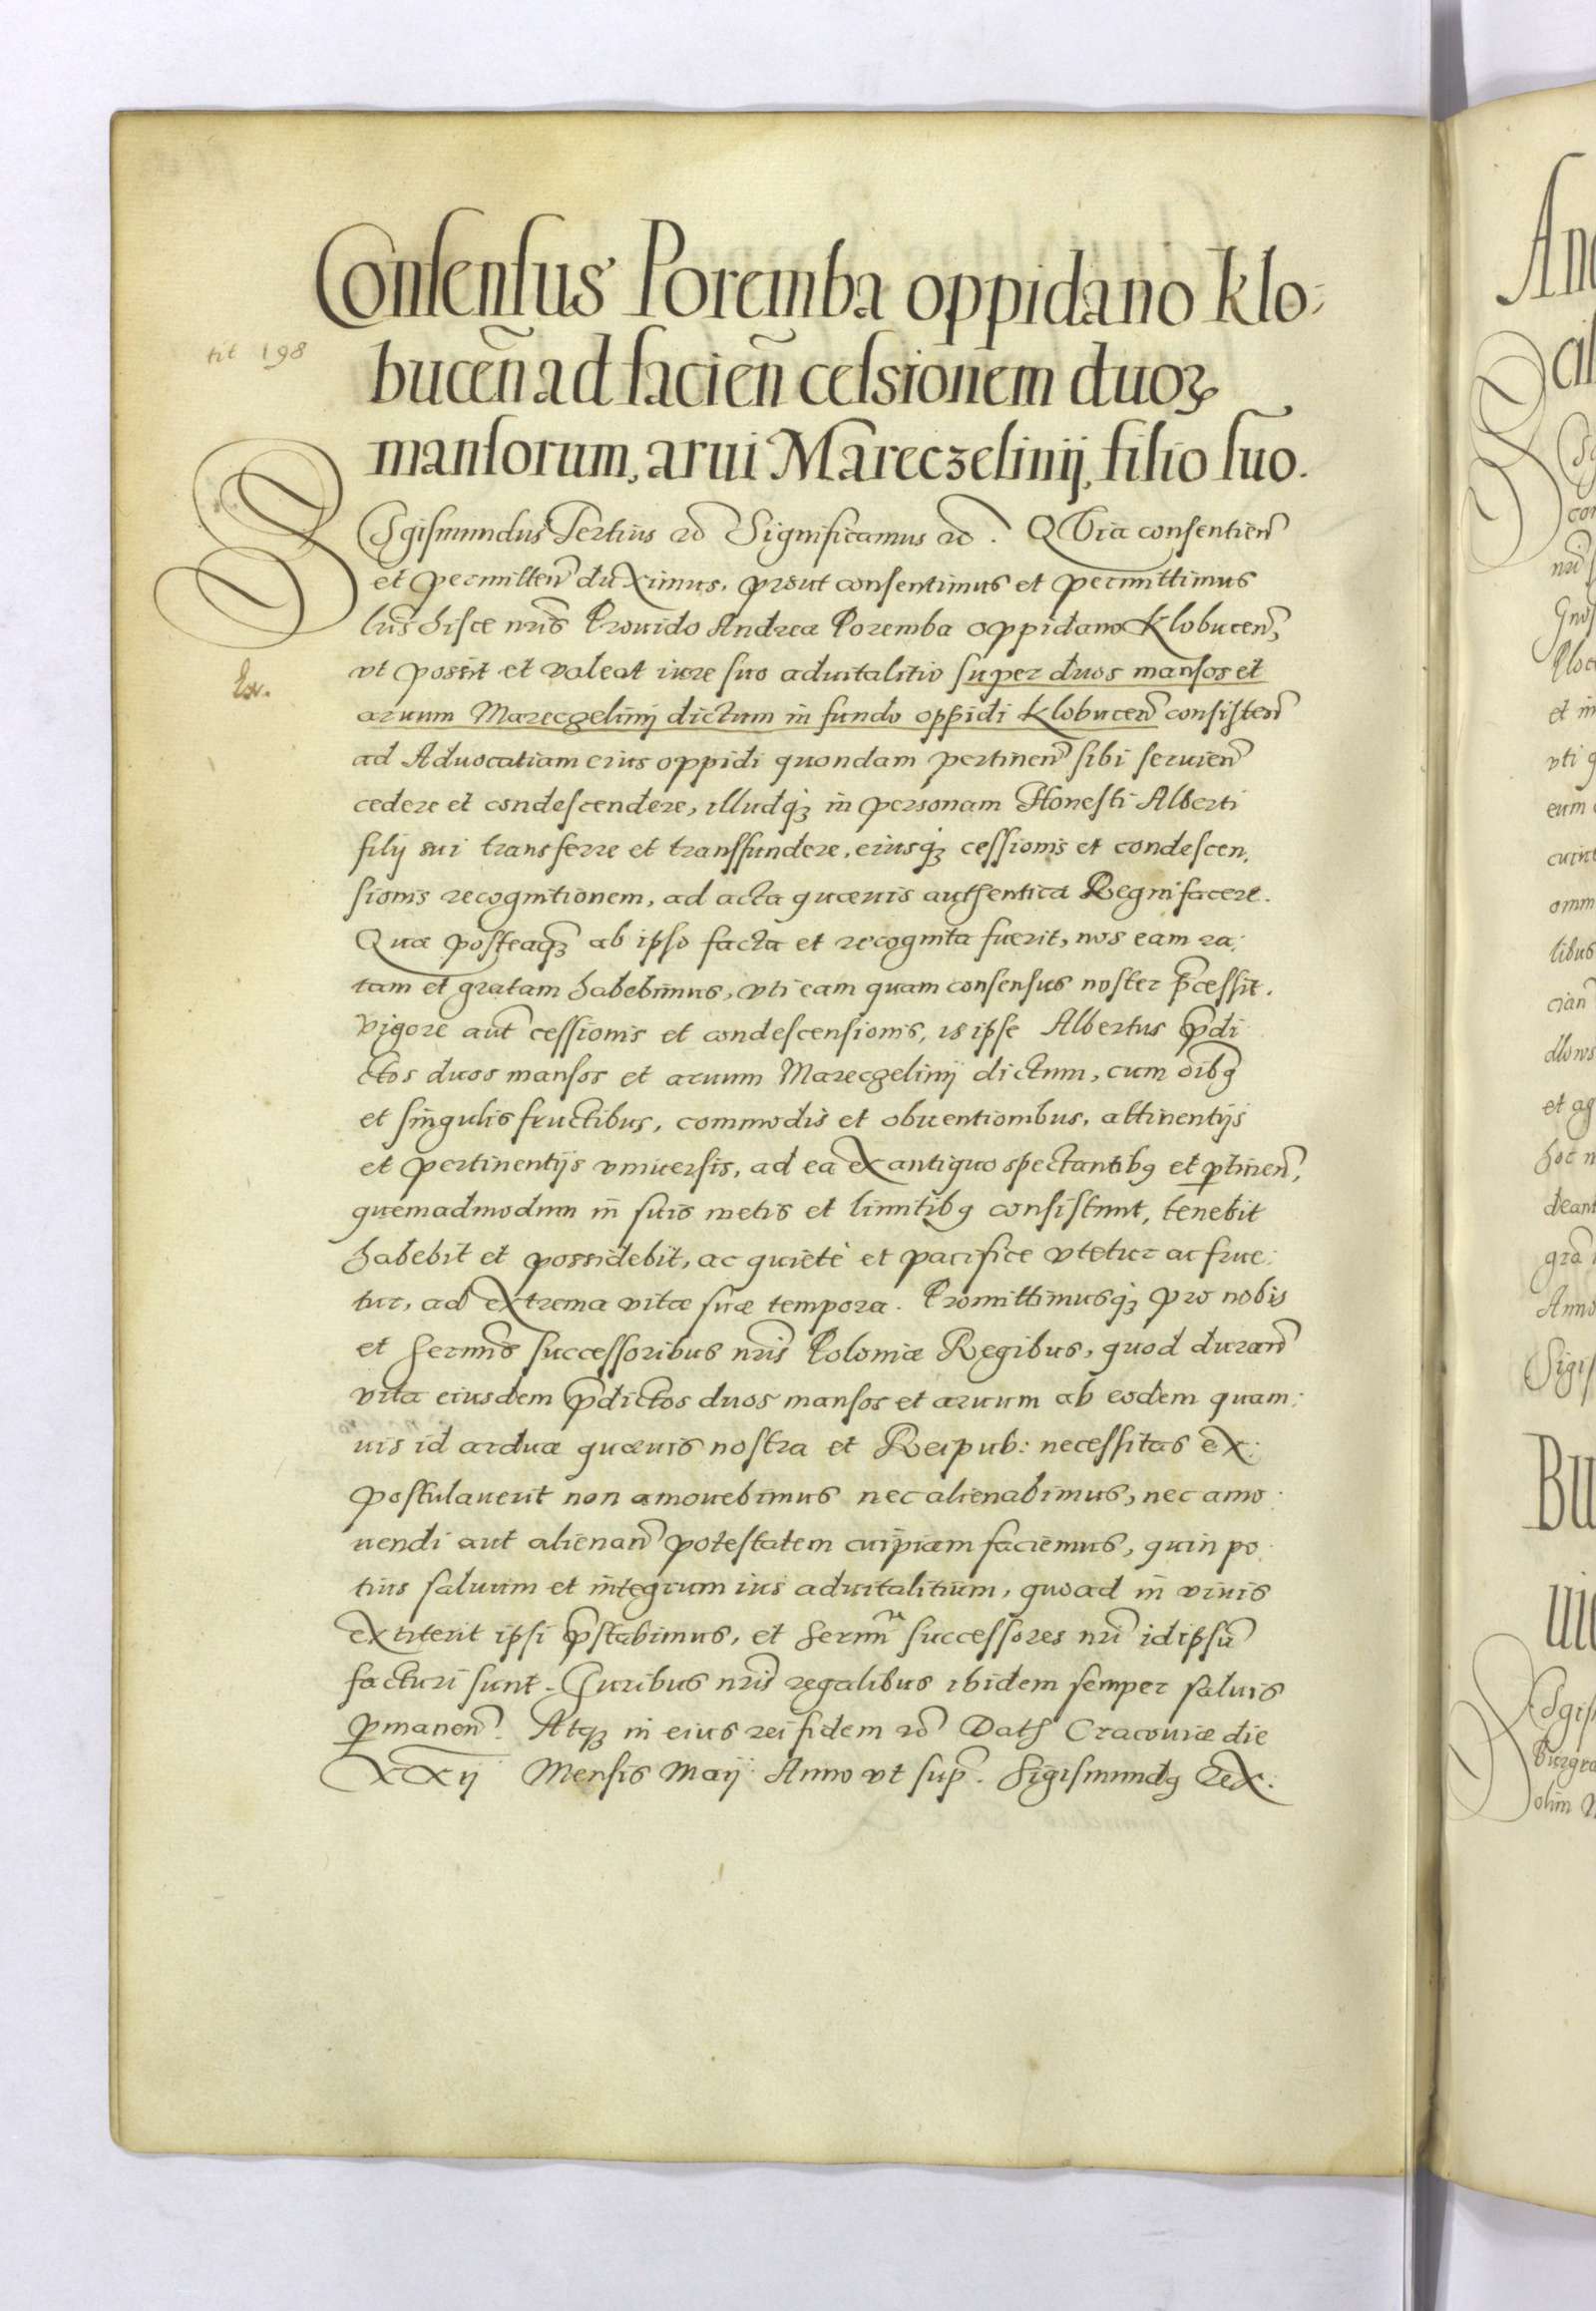 Consensus Poremba oppidano Klo:
bucen̄ ad facien̄ cessionem duoꝝ
tit 198
mansorum, arui Mareczelinij, filio suo.
Sigismundus Tertius ꝛc̄ Significamus ꝛc̄. Quia consentien̄
et permitten̄ duximus, prout consentimus et permittimus
lr̄is hisce nr̄is Prouido Andreæ Poremba oppidano Klobucen̄,
Ex.
vt possit et valeat iure suo aduitalitio super duos mansos et
aruum Mareczelinij dictum in fundo oppidi Klobucen̄ consisten̄
ad Aduocatiam eius oppidi quondam pertinen̄ sibi seruien̄
cedere et condescendere, illudqꝫ in personam Honesti Alberti
filij sui transferre et transfundere, eiusqꝫ cessionis et condescen,
sionis recognitionem, ad acta quæuis authentica Regni facere.
Quæ posteaqꝫ ab ipso facta et recognita fuerit, nos eam ra:
tam et gratam habebimus, vti eam quam consensus noster p̄cessit.
Vigore aut̄ cessionis et condescensionis, is ipse Albertus p̄di
ctos duos mansos et aruum Mareczelinij dictum, cum oībꝰ
et singulis fructibus, commodis et obuentionibus, attinentijs
et pertinentijs vniuersis, ad ea ex antiquo spectantibꝰ et ꝑtinen̄,
quemadmodum in suis metis et limitibꝰ consistunt, tenebit
habebit et possidebit, ac quietè et pacifice vtetur ac frue:
tur, ad extrema vitæ suæ tempora. Promittimusqꝫ pro nobis
et Serm̄is successoribus nr̄is Poloniæ Regibus, quod duran̄
vita eiusdem p̄dictos duos mansos et aruum ab eodem quam:
uis id arduæ quæuis nostra et Reipub: necessitas ex:
postulauerit non amouebimus nec alienabimus, nec amo:
uendi aut alienan̄ potestatem cuipiam faciemus, quin po:
tius saluum et integrum ius aduitalitium, quoad in viuis
extiterit ipsi p̄stabimus, et Sermi successores nr̄i id ipsū
facturi sunt. Iuribus nr̄is regalibus ibidem semper saluis
ꝑmanen̄. Atqꝫ in eius rei fidem ꝛc̄ Dat̄ Cracouiæ die
XXij Mensis Maij Anno vt sup̄. Sigismundꝰ Rex.